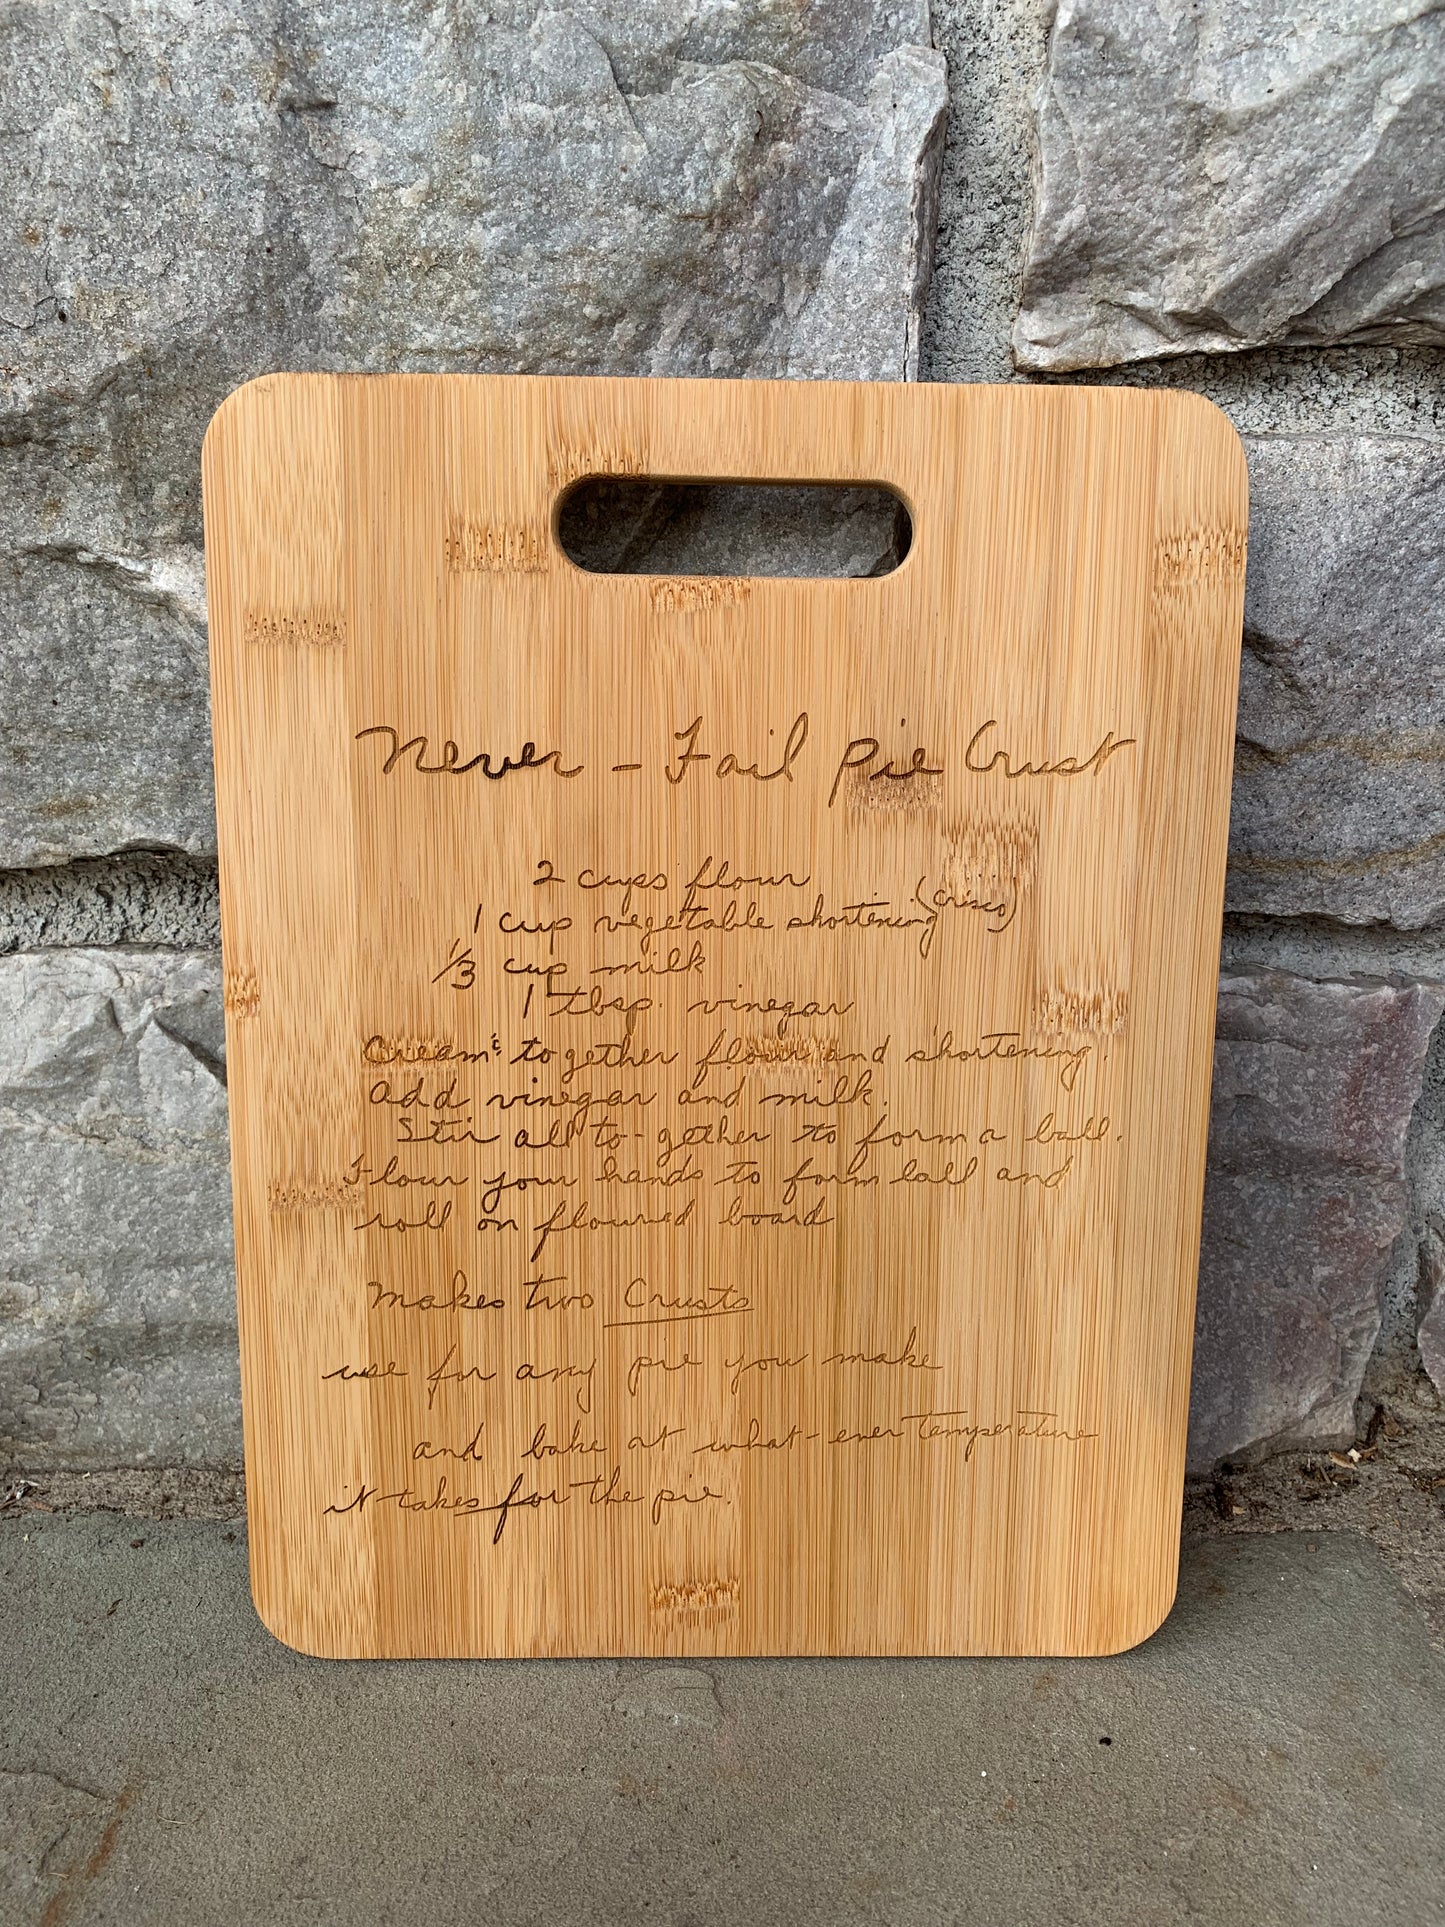 Never - Fail Pie Crust
2 cups flour
1 cup vegetable shortening (Crisco)
1/3 cup milk
1 tbsp. vinegar
Cream together flour and shortening.
Add vinegar and milk.
Stir all to-gether to form a ball.
Flour your hands to form ball and
roll on floured board
Makes two Crusts
use for any pie you make
and bake at what-ever temperature
it takes for the pie.